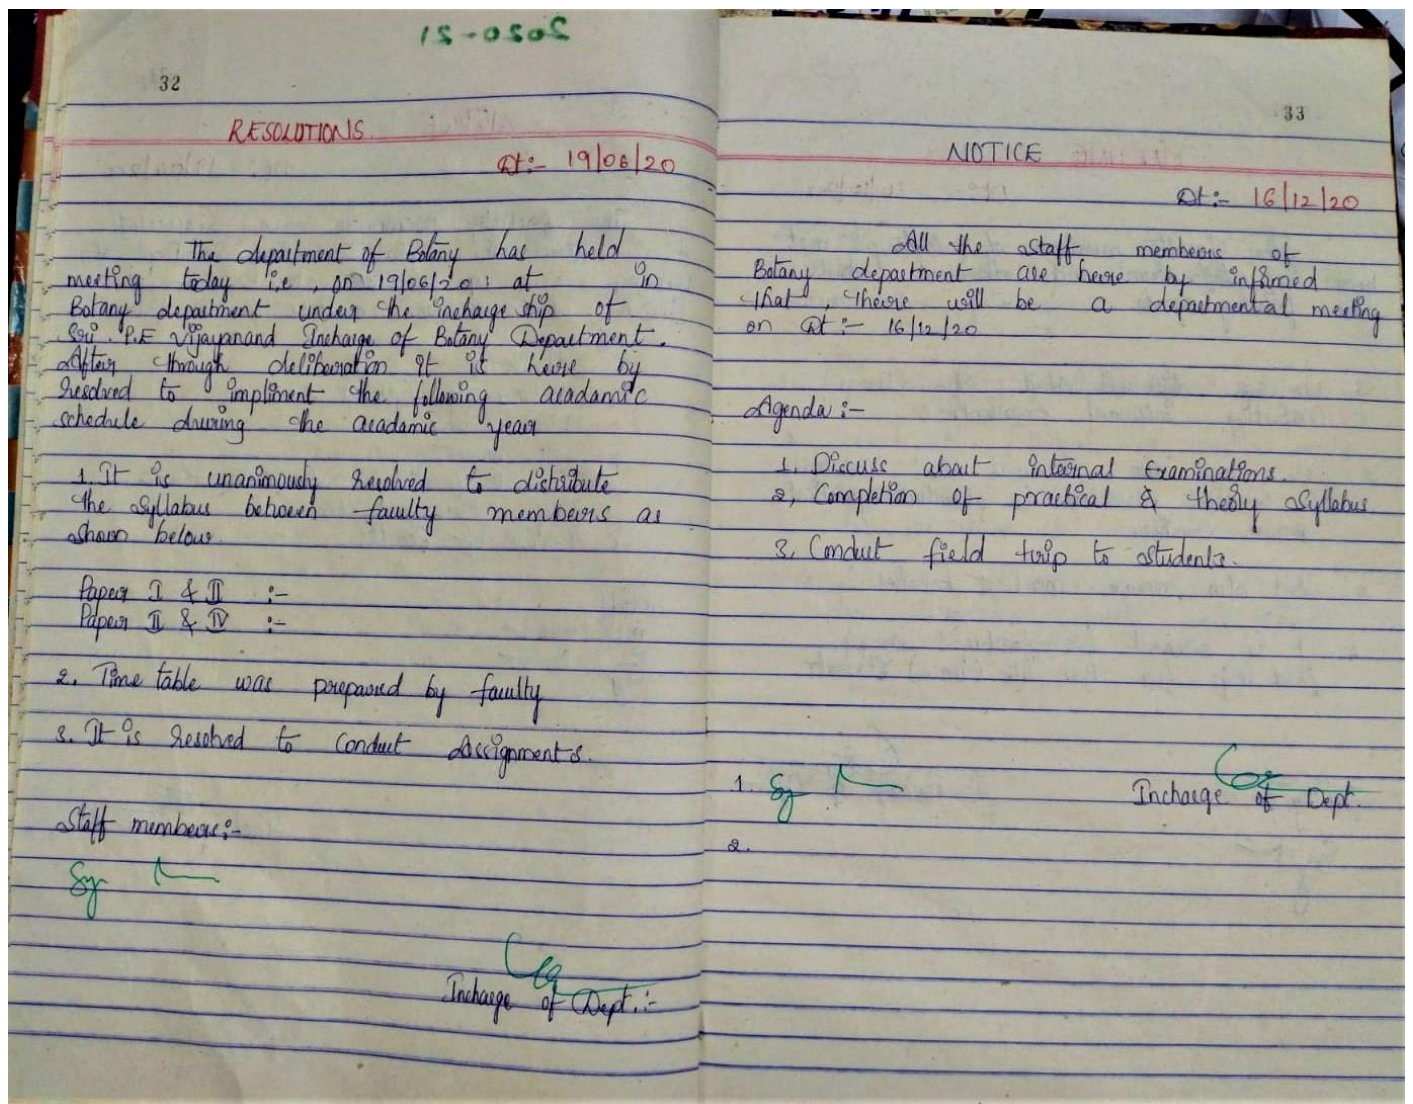 2020-21
32
RESOLUTIONS
Dt:- 19/06/20
The department of Botany has held
meeting today i.e, on 19/06/20 at in
Botany department under the incharge ship of
Sri. P.E Vijayanand Incharge of Botany Department.
After through deliberation it is here by
resolved to impliment the following acadamic
schedule during the acadamic year
1. It is unanimously resolved to distribute
the syllabus between faculty members as
shown below.
Paper I & II :-
Paper II & IV :-
2. Time table was prepared by faculty
3. It is resolved to conduct Assignments.
Staff members:-
Incharge of Dept.:-
33
NOTICE
Dt:- 16/12/20
All the staff members of
Botany department are here by informed
that, there will be a departmental meeting
on Dt:- 16/12/20
Agenda:-
1. Discuss about internal Examinations.
2, Completion of practical & theory syllabus
3, Conduct field trip to students.
1.
Incharge of Dept.
2.